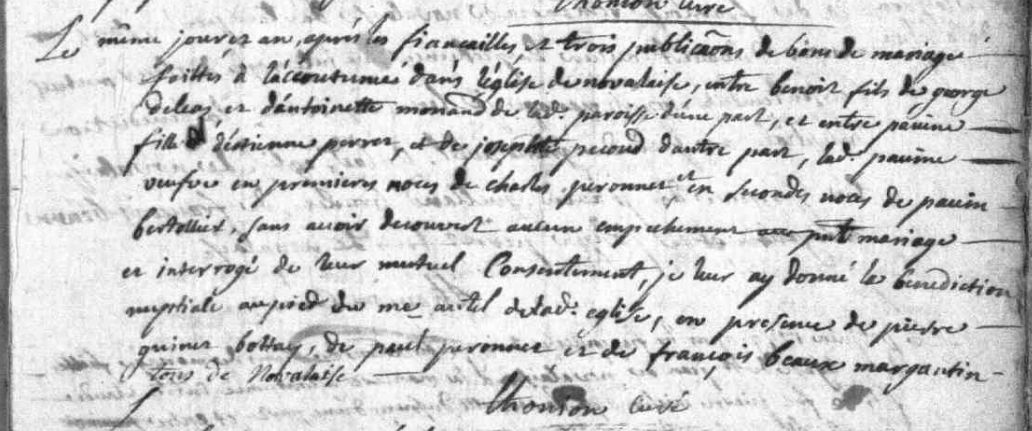 Thonion curé
Le même jour et an, après les fiancailles, et trois publicãons de bans de mariage
faittes à l'accoutumée dans l'église de novalaise, entre benoit fils de george
et d'antoinette monand de lad. paroisse d'une part, et entre pavine
fille d'étienne perret, et de josephte pecoud d'autre part, lad. pavine
veufve en premieres noces de charles peronnet et en secondes noces de pavin
bertollier, sans avoir decouvert aucun empechement au pnt mariage
et interrogé de leur mutuel Consentement, je leur ay donné la benediction
nuptiale au pied du me autel de lad. eglise, en presence de pierre
guinet bottay, de paul peronnet et de françois beaux margantin
tous de Novalaise
Thonion curé